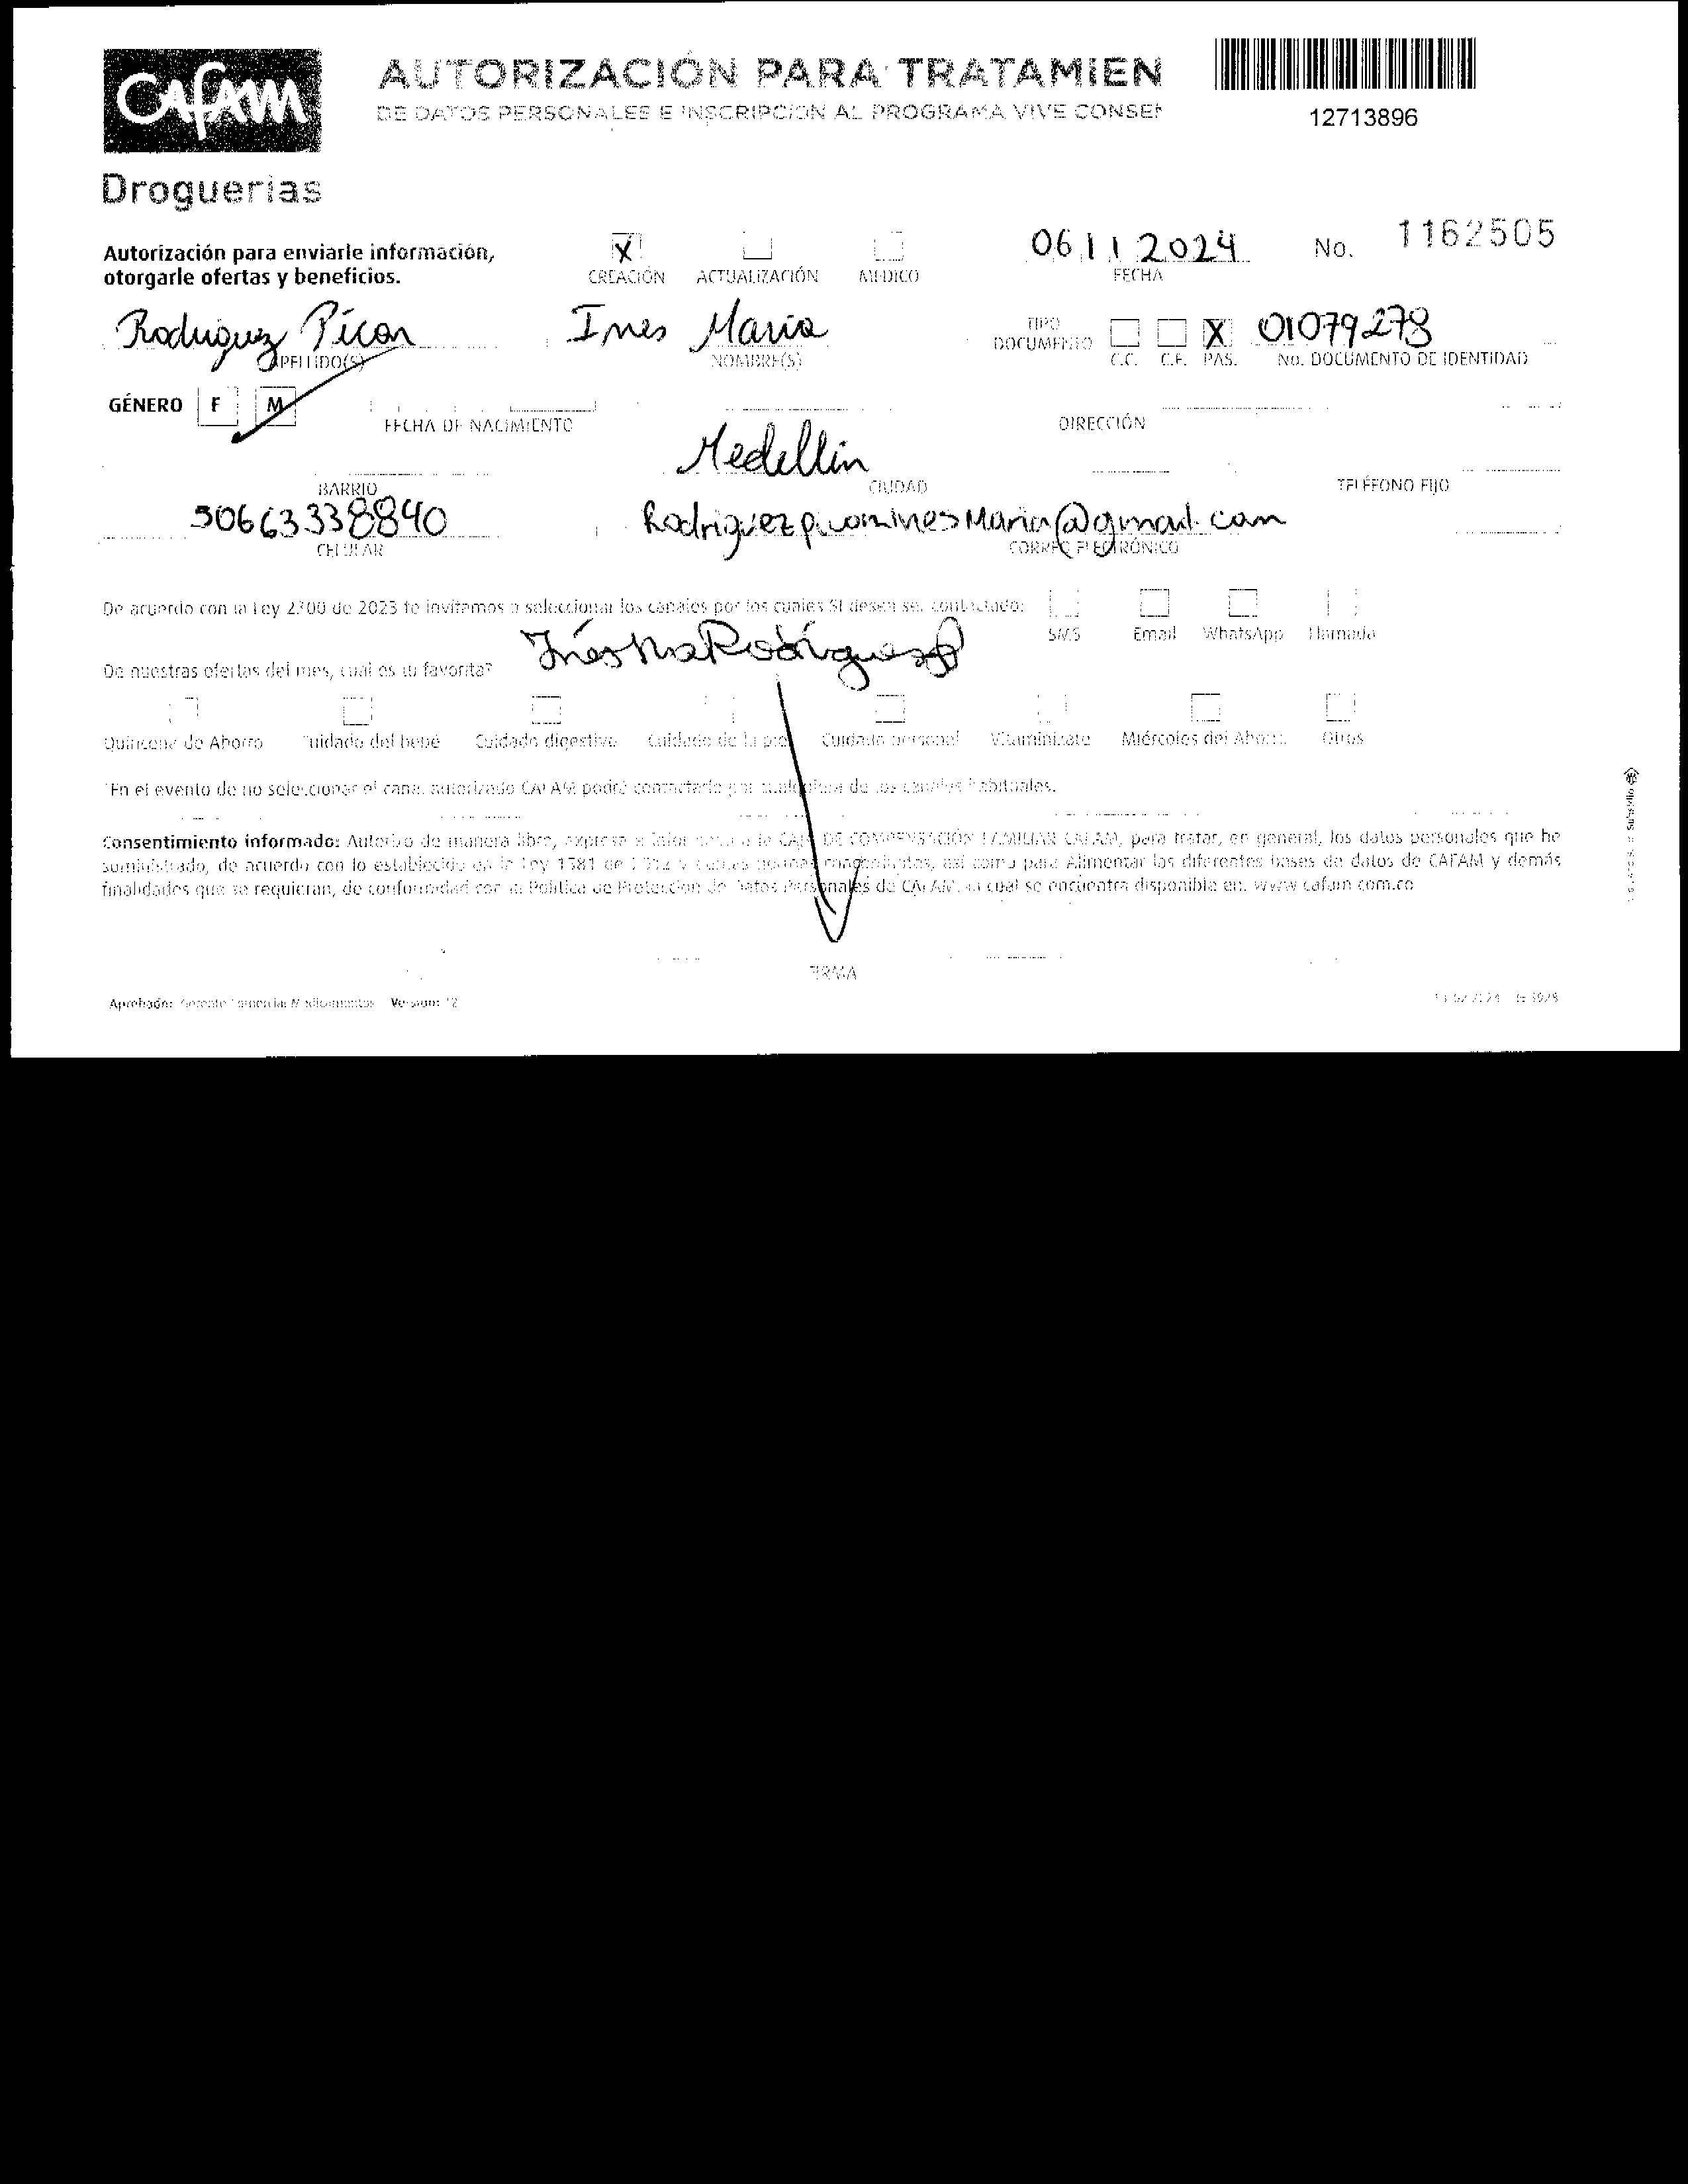 Cafam
AUTORIZACIÓN PARA TRATAMIEN
DE DATOS PERSONALES E INSCRIPCIÓN AL PROGRAMA VIVE CONSEN
12713896
Droguerías
Autorización para enviarle información,
otorgarle ofertas y beneficios.
X
CREACIÓN ACTUALIZACIÓN MÉDICO
06 11 2024
FECHA
No. 1162505
Rodriguez Picon
APELLIDO(S)
Ines Maria
NOMBRE(S)
TIPO
DOCUMENTO
X
C.C. C.E. PAS.
01079278
No. DOCUMENTO DE IDENTIDAD
GÉNERO F M
FECHA DE NACIMIENTO
DIRECCIÓN
BARRIO
Medellin
CIUDAD
TELÉFONO FIJO
50663338840
CELULAR
RodriguezpiconinesMaria@gmail.com
CORREO ELECTRÓNICO
De acuerdo con la Ley 2300 de 2023 te invitamos a seleccionar los canales por los cuales SI desea ser contactado:
SMS Email WhatsApp Llamada
De nuestras ofertas del mes, cuál es tu favorita?
Inés Ma Rodríguez P
Quincena de Ahorro Cuidado del bebé Cuidado digestivo Cuidado de la piel Cuidado personal Vitaminízate Miércoles del Ahorro Otros
*En el evento de no seleccionar el canal autorizado CAFAM podrá contactarlo por cualquiera de los canales habituales.
Consentimiento informado: Autorizo de manera libre, expresa e informada a la CAJA DE COMPENSACIÓN FAMILIAR CAFAM, para tratar, en general, los datos personales que he
suministrado, de acuerdo con lo establecido en la Ley 1581 de 2012 y demás normas concordantes, así como para Alimentar las diferentes bases de datos de CAFAM y demás
finalidades que se requieran, de conformidad con la Política de Protección de Datos Personales de CAFAM, la cual se encuentra disponible en: www.cafam.com.co
FIRMA
Aprobado: Gerente Comercial Medicamentos Versión: 12